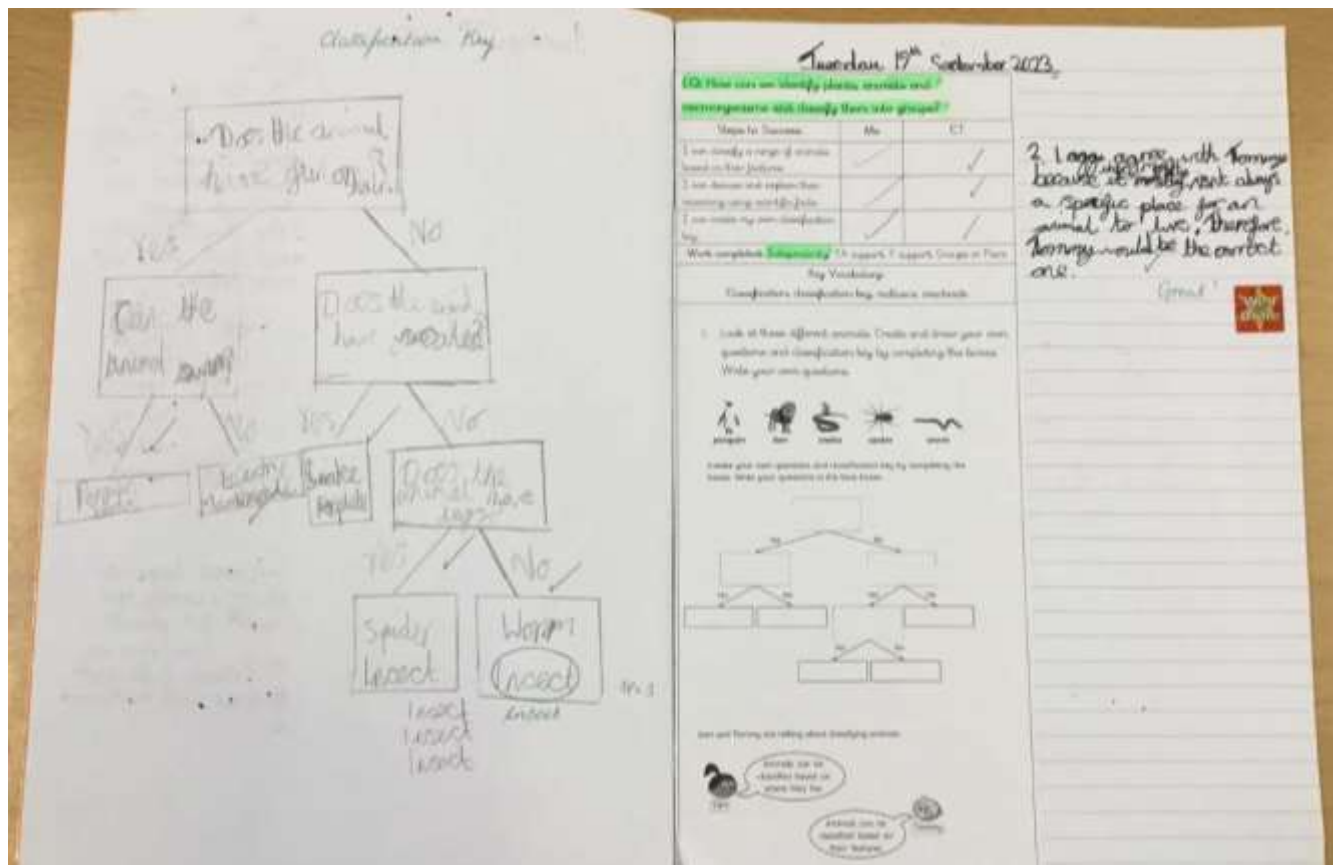 Classification Key
Does the animal
have fur or hair?
Yes
No
Can the
animal swim?
Does the animal
have
Yes
No
Yes
No
Snake
Does the
animal have
legs?
Yes
No
Spider
Insect
Worm
Insect
Insect
Insect
Insect
Insect
Tuesday 19th September 2023
LQ: How can we identify plants, animals and
microorganisms and classify them into groups?
Steps to Success
Me
CT
I can classify a range of animals
based on their features
I can discuss and explain their
reasoning using scientific facts
I can create my own classification
key
Work completed: Independently TA support T support Groups or Pairs
Key Vocabulary
Classification, classification key,
Look at these different animals. Create and draw your own
questions and classification key by completing the boxes.
Write your own questions.
penguin lion snake spider worm
Create your own questions and classification key by completing the
boxes. Write your questions in the blue boxes.
Yes
No
Yes
No
Yes
No
Yes
No
and Tommy are talking about classifying animals.
Animals can be
classified based on
where they live.
Animals can be
classified based on
their features.
2. I agree with Tommy
because it isn't always
a specific place for an
animal to live, therefore,
Tommy would be the correct
one.
Great!